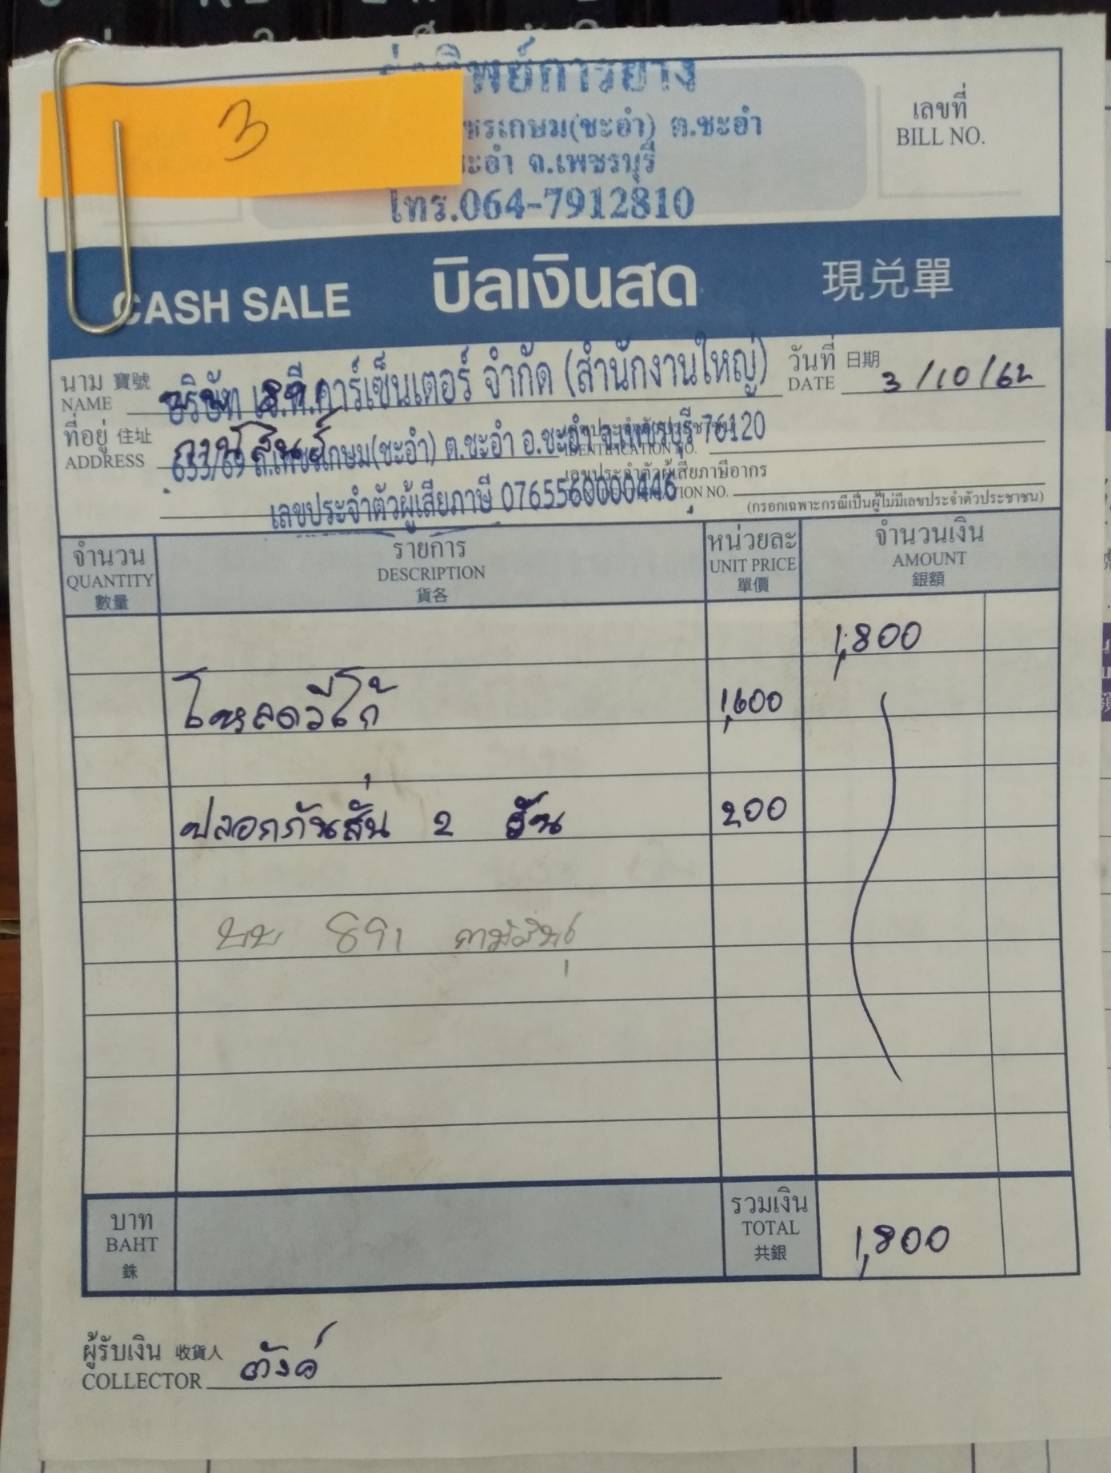 3
ทิพย์การยาง
ชรเกษม(ชะอำ) ต.ชะอำ
ชะอำ จ.เพชรบุรี
โทร.064-7912810
เลขที่
BILL NO.
CASH SALE บิลเงินสด 現兑單
นาม 寶號
NAME
บริษัท เอ.ที.คาร์เซ็นเตอร์ จำกัด (สำนักงานใหญ่)
891
วันที่ 日期
DATE 3/10/62
ที่อยู่ 住址
ADDRESS
กาฬสินธุ์
653/69 ถ.เพชรเกษม(ชะอำ) ต.ชะอำ อ.ชะอำ จ.เพชรบุรี 76120
IDENTIFICATION NO.
เลขประจำตัวผู้เสียภาษีอากร
เลขประจำตัวผู้เสียภาษี 0765560000446
ION NO.
(กรอกเฉพาะกรณีเป็นผู้ไม่มีเลขประจำตัวประชาชน)
จำนวน รายการ หน่วยละ จำนวนเงิน
QUANTITY DESCRIPTION UNIT PRICE AMOUNT
數量 貨各 單價 銀額
1,800
โหลดวีโก้ 1,600
ปลอกกันสั่น 2 อัน 200
บบ 891 กาฬสินธุ์
บาท รวมเงิน
BAHT TOTAL 1,800
銖 共銀
ผู้รับเงิน 收貨人
COLLECTOR ตังค์